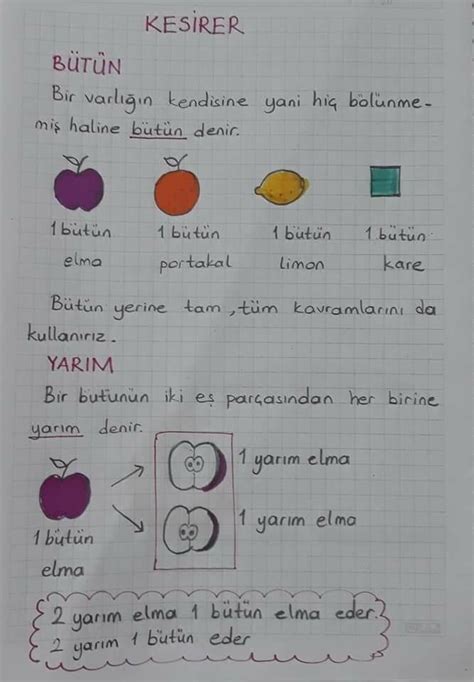 KESİRER
BÜTÜN
Bir varlığın kendisine yani hiç bölünme-
miş haline bütün denir.
1 bütün 1 bütün 1 bütün 1 bütün
elma portakal limon kare
Bütün yerine tam, tüm kavramlarını da
kullanırız.
YARIM
Bir bütünün iki eş parçasından her birine
yarım denir.
1 yarım elma
1 yarım elma
1 bütün
elma
2 yarım elma 1 bütün elma eder.
2 yarım 1 bütün eder